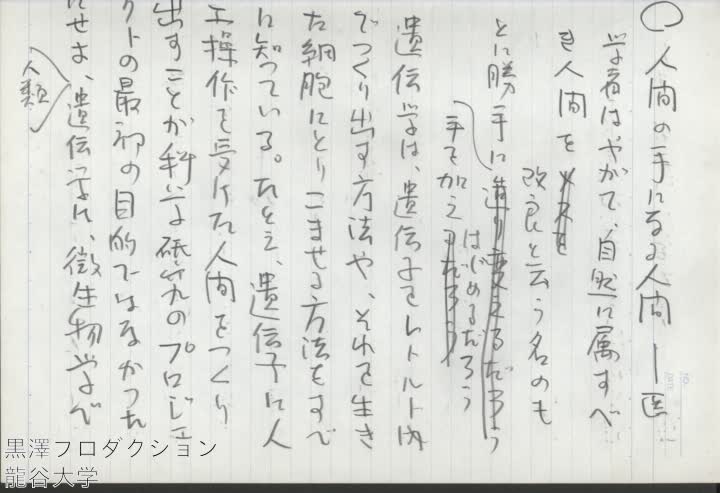 ○人間の手になる人間―医
学者はやがて、自然に属すべ
き人間を
改良と云う名のも
とに勝手に造り変えるだろう
はじめるだろう
手を加え
遺伝学は、遺伝子をレトルト内
でつくり出す方法や、それを生き
た細胞にとりこませる方法をすで
に知っている。たとえ、遺伝子に人
工操作を受けた人間をつくり
出すことが科学研究のプロジェ
クトの最初の目的ではなかった
にせよ、遺伝学は、微生物学で
人類
黒澤プロダクション
龍谷大学